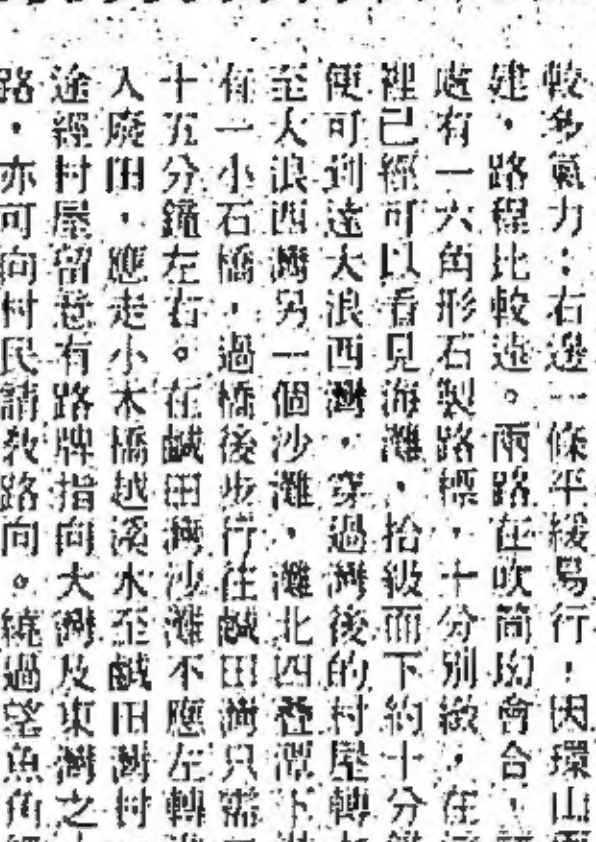 較多氣力；右邊一條平緩易行，因環山
建，路程比較遠。兩路在吹筒坳會合，
處有一六角形石製路標，十分別緻，在
裡已經可以看見海灘，拾級而下約十分
便可到達大浪西灣，穿過灣後的村屋轉
至大浪西灣另一個沙灘，灘北四疊潭下
有一小石橋，過橋後步行往鹹田灣只需
十五分鐘左右。在鹹田灣沙灘不應左轉
入廢田，應走小木橋越溪水至鹹田灣村
途經村屋留意有路牌指向大灣及東灣之
路，亦可向村民請教路向。繞過望魚角